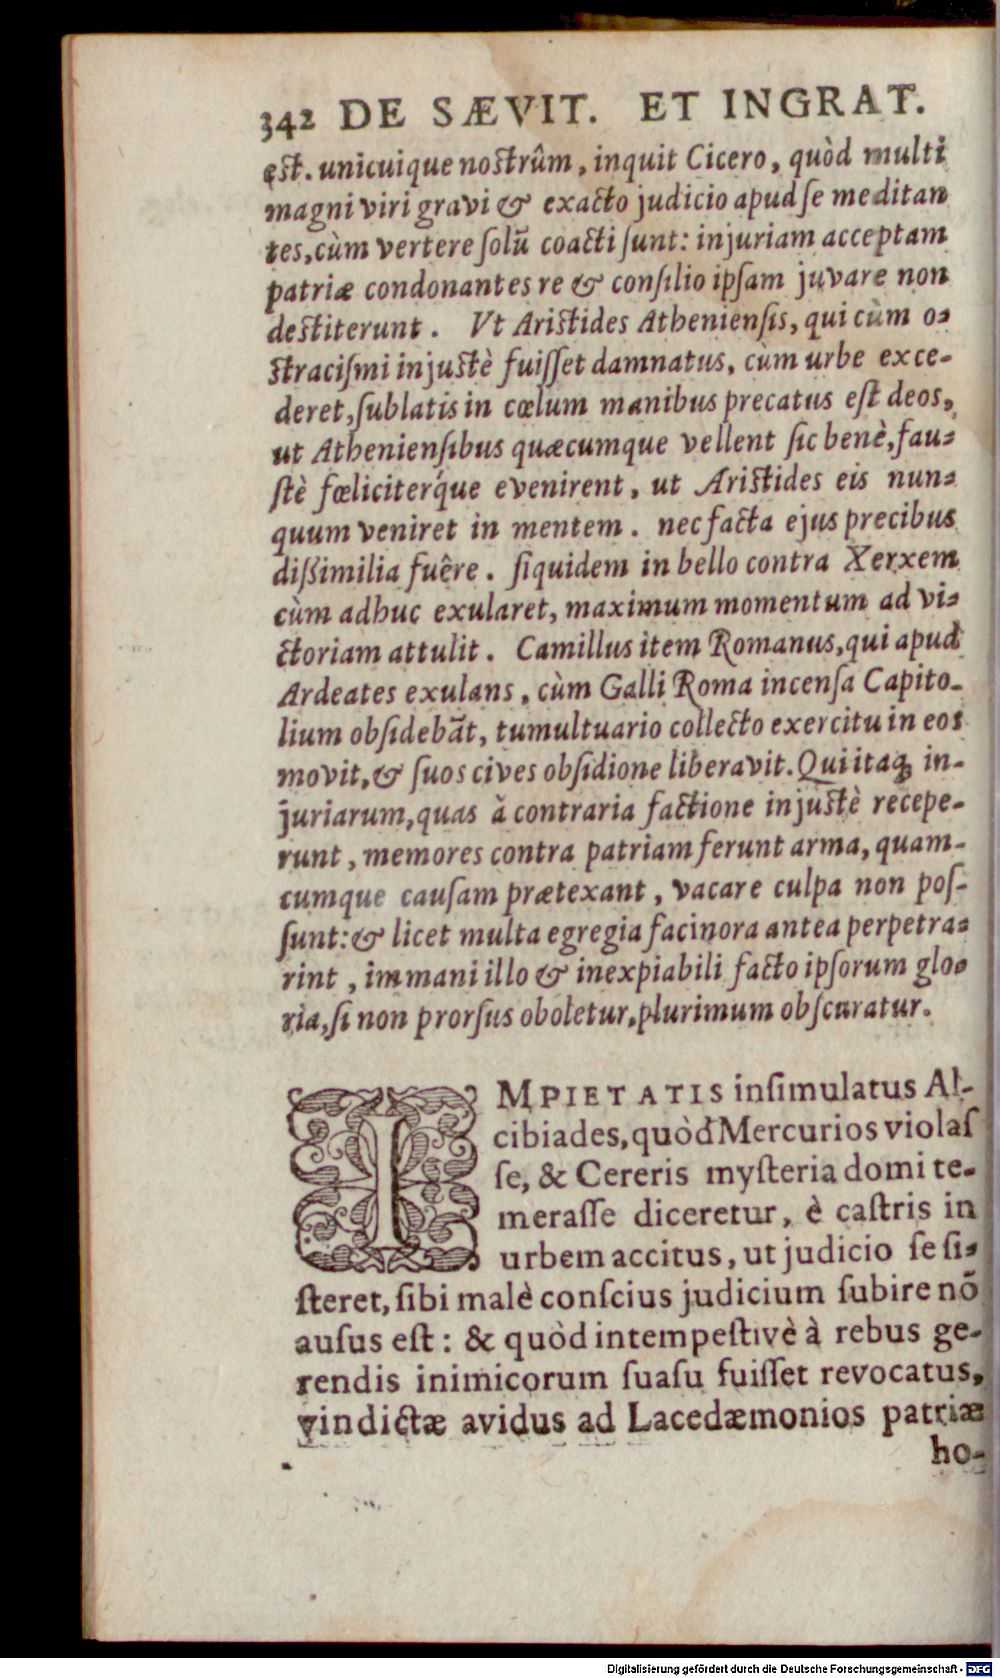 342 DE SÆVIT. ET INGRAT.
est. unicuique nostrûm, inquit Cicero, quòd multi
magni viri gravi & exacto judicio apud se meditan
tes, cùm vertere solũ coacti sunt: injuriam acceptam
patriæ condonantes re & consilio ipsam juvare non
destiterunt. Vt Aristides Atheniensis, qui cùm o-
stracismi injustè fuisset damnatus, cùm urbe exce-
deret, sublatis in cœlum manibus precatus est deos,
ut Atheniensibus quæcumque vellent sic benè, fau-
stè fœliciterq́ue evenirent, ut Aristides eis nun-
quum veniret in mentem. nec facta ejus precibus
dißimilia fuêre. siquidem in bello contra Xerxem
cùm adhuc exularet, maximum momentum ad vi-
ctoriam attulit. Camillus item Romanus, qui apud
Ardeates exulans, cùm Galli Roma incensa Capito-
lium obsidebãt, tumultuario collecto exercitu in eos
movit, & suos cives obsidione liberavit. Qui itaq; in-
juriarum, quas à contraria factione injustè recepe-
runt, memores contra patriam ferunt arma, quam-
cumque causam prætexant, vacare culpa non pos-
sunt: & licet multa egregia facinora antea perpetra-
rint, immani illo & inexpiabili facto ipsorum glo-
ria, si non prorsus oboletur, plurimum obscuratur.
IMPIETATIS insimulatus Al-
cibiades, quòd Mercurios violas
se, & Cereris mysteria domi te-
merasse diceretur, è castris in
urbem accitus, ut judicio se si-
steret, sibi malè conscius judicium subire nõ
ausus est: & quòd intempestivè à rebus ge-
rendis inimicorum suasu fuisset revocatus,
vindictæ avidus ad Lacedæmonios patriæ
ho-
Digitalisierung gefördert durch die Deutsche Forschungsgemeinschaft - DFG